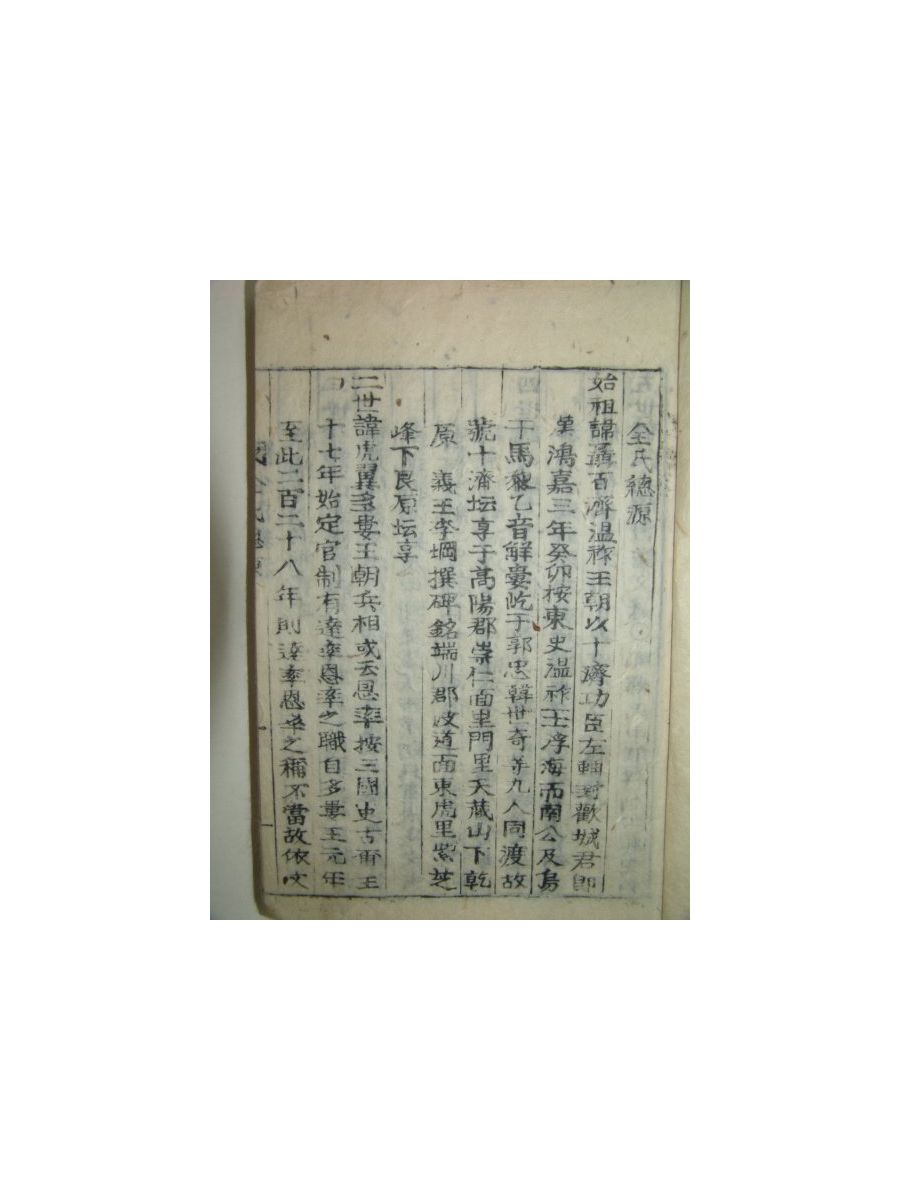 全氏總源
始祖諱聶百濟温祚王朝以十濟功臣左軸封歡城君即
漢鴻嘉三年癸卯按東史温祚王浮海而南公及烏
干馬黎乙音解婁屹于郭忠韓世奇等九人同渡故
號十濟坛享于高陽郡崇仁面里門里天蔵山下乾
原 義王李堈撰碑銘端川郡岐道面東虎里紫芝
峰下艮原坛享
二世諱虎翼多婁王朝兵相或云恩率按三國史古甭王
十七年始定官制有達率恩率之職自多婁王元年
至此二百二十八年則達率恩率之稱不當故依文